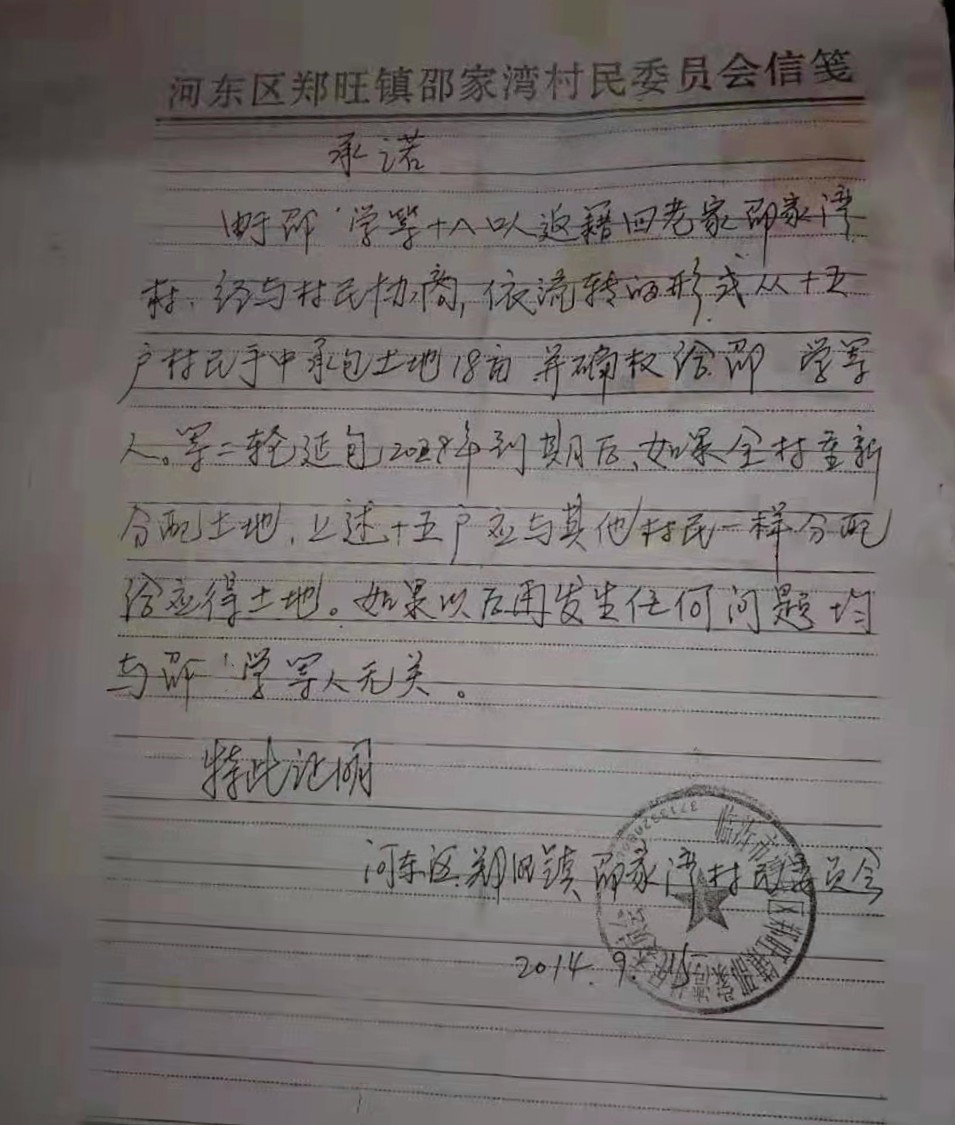 河东区郑旺镇邵家湾村民委员会信笺
承诺
由于邵 学等十八口人返籍回老家邵家湾
村、经与村民协商,依流转的形式从十五
户村民手中承包土地18亩并确权给邵 学等
人。等二轮延包2028年到期后、如果全村重新
分配土地,上述十五户应与其他村民一样分配
给应得土地。如果以后再发生任何问题均
与邵 学等人无关。
特此证明
河东区郑旺镇邵家湾村民委员会
2014.9.
临沂市河东区郑旺镇邵家湾村民委员会